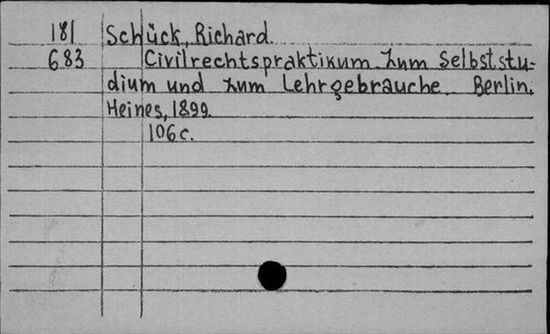 181 Schück, Richard.
683 Civilrechtspraktikum zum Selbststu-
dium und zum Lehrgebrauche. Berlin,
Heines, 1899.
106 c.